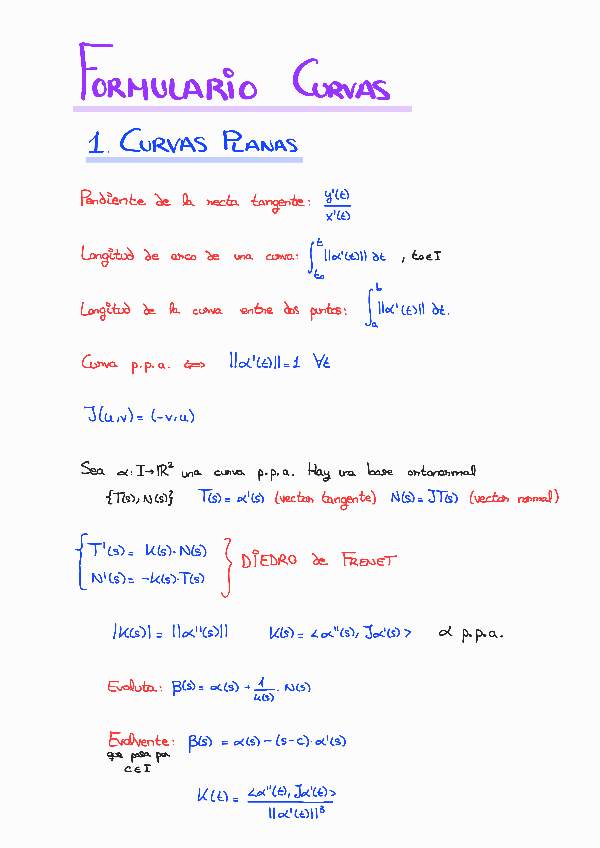 FORMULARIO CURVAS
1. CURVAS PLANAS
Pendiente de la recta tangente: y'(t) / x'(t)
Longitud de arco de una curva: ∫_{to}^{t} ||α'(t)|| dt , to∈I
Longitud de la curva entre dos puntos: ∫_{a}^{b} ||α'(t)|| dt.
Curva p.p.a. ⟺ ||α'(t)||=1 ∀t
J(u,v) = (-v,u)
Sea α: I→ℝ² una curva p.p.a. Hay una base ortonormal
{T(s), N(s)} T(s) = α'(s) (vector tangente) N(s) = JT(s) (vector normal)
T'(s) = K(s)·N(s)
N'(s) = -k(s)·T(s)
DIEDRO de FRENET
|K(s)| = ||α''(s)|| K(s) = <α''(s), Jα'(s)> α p.p.a.
Evoluta: β(s) = α(s) + 1/k(s) · N(s)
Evolvente: β(s) = α(s) - (s-c)·α'(s)
que pasa por
c∈I
K(t) = <α''(t), Jα'(t)> / ||α'(t)||³